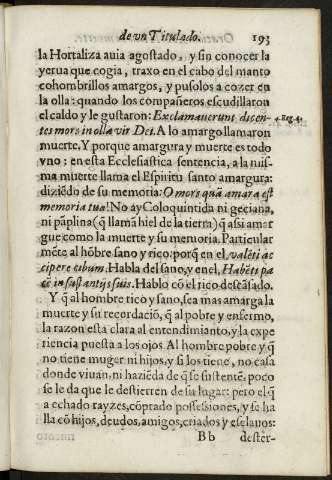 de vn Titulado. 193
la Hortaliza auia agostado, y sin conocer la
yerua que cogia, traxo en el cabo del manto
cohombrillos amargos, y pusolos a cozer en
la olla: quando los compañeros escudillaron
el caldo y le gustaron: Exclamauerunt dicen- 4. reg. 4.
tes mors in olla vir Dei. A lo amargo llamaron
muerte. Y porque amargura y muerte es todo
vno: en esta Ecclesiastica sentencia, a la mis-
ma muerte llama el Espiritu santo amargura:
diziēdo de su memoria: O mors quā amara est
memoria tua! No ay Coloquintida ni gēciana,
ni pāplina (q̄ llamā hiel de la tierra) q̄ assi amar
gue como la muerte y su memoria. Particular
mēte al hōbre sano y rico: porq̄ en el, valēti ac
cipere cibum. Habla del sano, y en el, Habēti pa
cē in substantijs suis. Hablo cō el rico descāsado.
Y q̄ al hombre rico y sano, sea mas amarga la
muerte y su recordaciō, q̄ al pobre y enfermo,
la razon esta clara al entendimiento, y la expe
riencia puesta a los ojos. Al hombre pobre y q̄
no tiene muger ni hijos, y si los tiene, no casa
donde viuan, ni haziēda de q̄ se sustentē, poco
se le da que le destierren de su lugar: pero el q̄
a echado rayzes, cōprado possessiones, y se ha
lla cō hijos, deudos, amigos, criados y esclauos:
Bb dester-